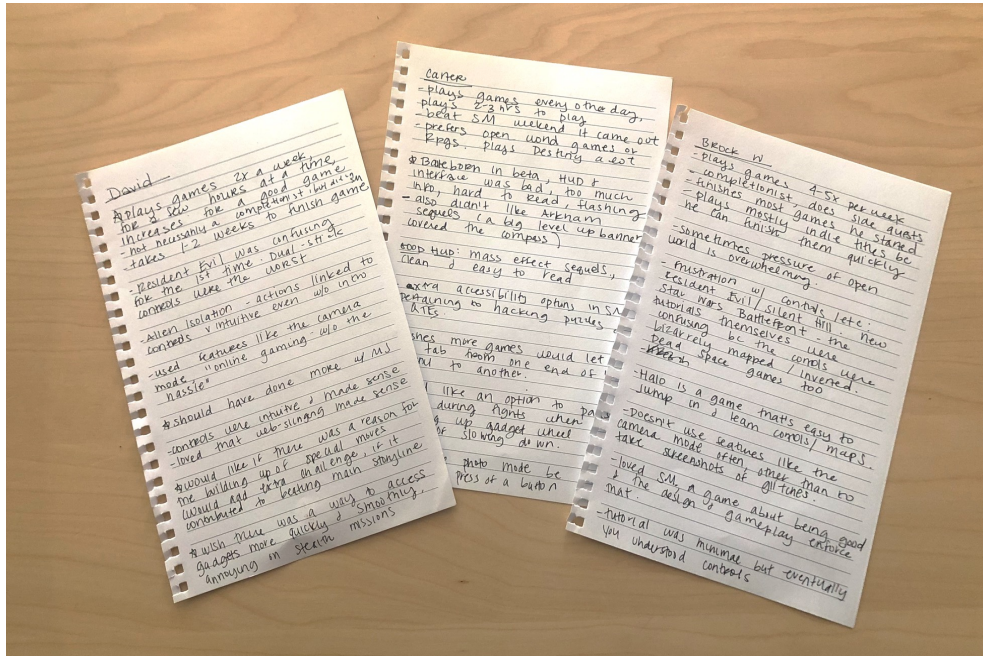 David
☆ plays games 2x a week,
for a few hours at a time,
increases for a good game
- not necessarily a completionist, but did in
- takes 1-2 weeks to finish game
- Resident Evil was confusing
for the 1st time. Dual-stick
controls were the worst
- Alien Isolation - actions linked to
controls v intuitive even w/o intro
- used features like the camera
mode "online gaming w/o the
hassle"
☆ should have done more w/ MJ
- controls were intuitive & made sense
- loved that web-slinging made sense
☆ would like if there was a reason for
the building up of special moves
(would add extra challenge, if it
contributed to beating main storyline
☆ wish there was a way to access
gadgets more quickly & smoothly,
annoying on stealth missions
Carter
- plays games every other day,
plays 2-3 hrs to play
- beat SM weekend it came out
- prefers open world games or
Rpgs, plays Destiny a lot
☆ Battleborn in beta, HUD &
interface was bad, too much
info, hard to read, flashing
- also didn't like Arkham
sequels (a big level up banner
covered the compass)
GOOD HUD: mass effect sequels,
clean & easy to read
extra accessibility options in SM
pertaining to hacking puzzles
QTEs
shes more games would let
tab from one end of
nu to another.
like an option to pa
during fights when
g up gadget wheel
of slowing down.
photo mode be
press of a button
Brock W
- plays games 4-5x per week
- completionist, does side quests
- finishes most games he started
- plays mostly indie titles bc
he can finish them quickly
- sometimes pressure of open
world is overwhelming.
- frustration w/ controls, etc:
Resident Evil / Silent Hill, new
Star Wars Battlefront - the
tutorials themselves were
confusing bc the conrols were
bizarrely mapped / inverted.
Dead Space games too.
- Halo is a game that's easy to
jump in & learn conrols / maps.
- doesn't use features like the
camera mode often other than to
take screenshots of glitches.
- loved SM, a game about being good
& the design & gameplay enforce
that.
- tutorial was minimal but eventually
you understood controls